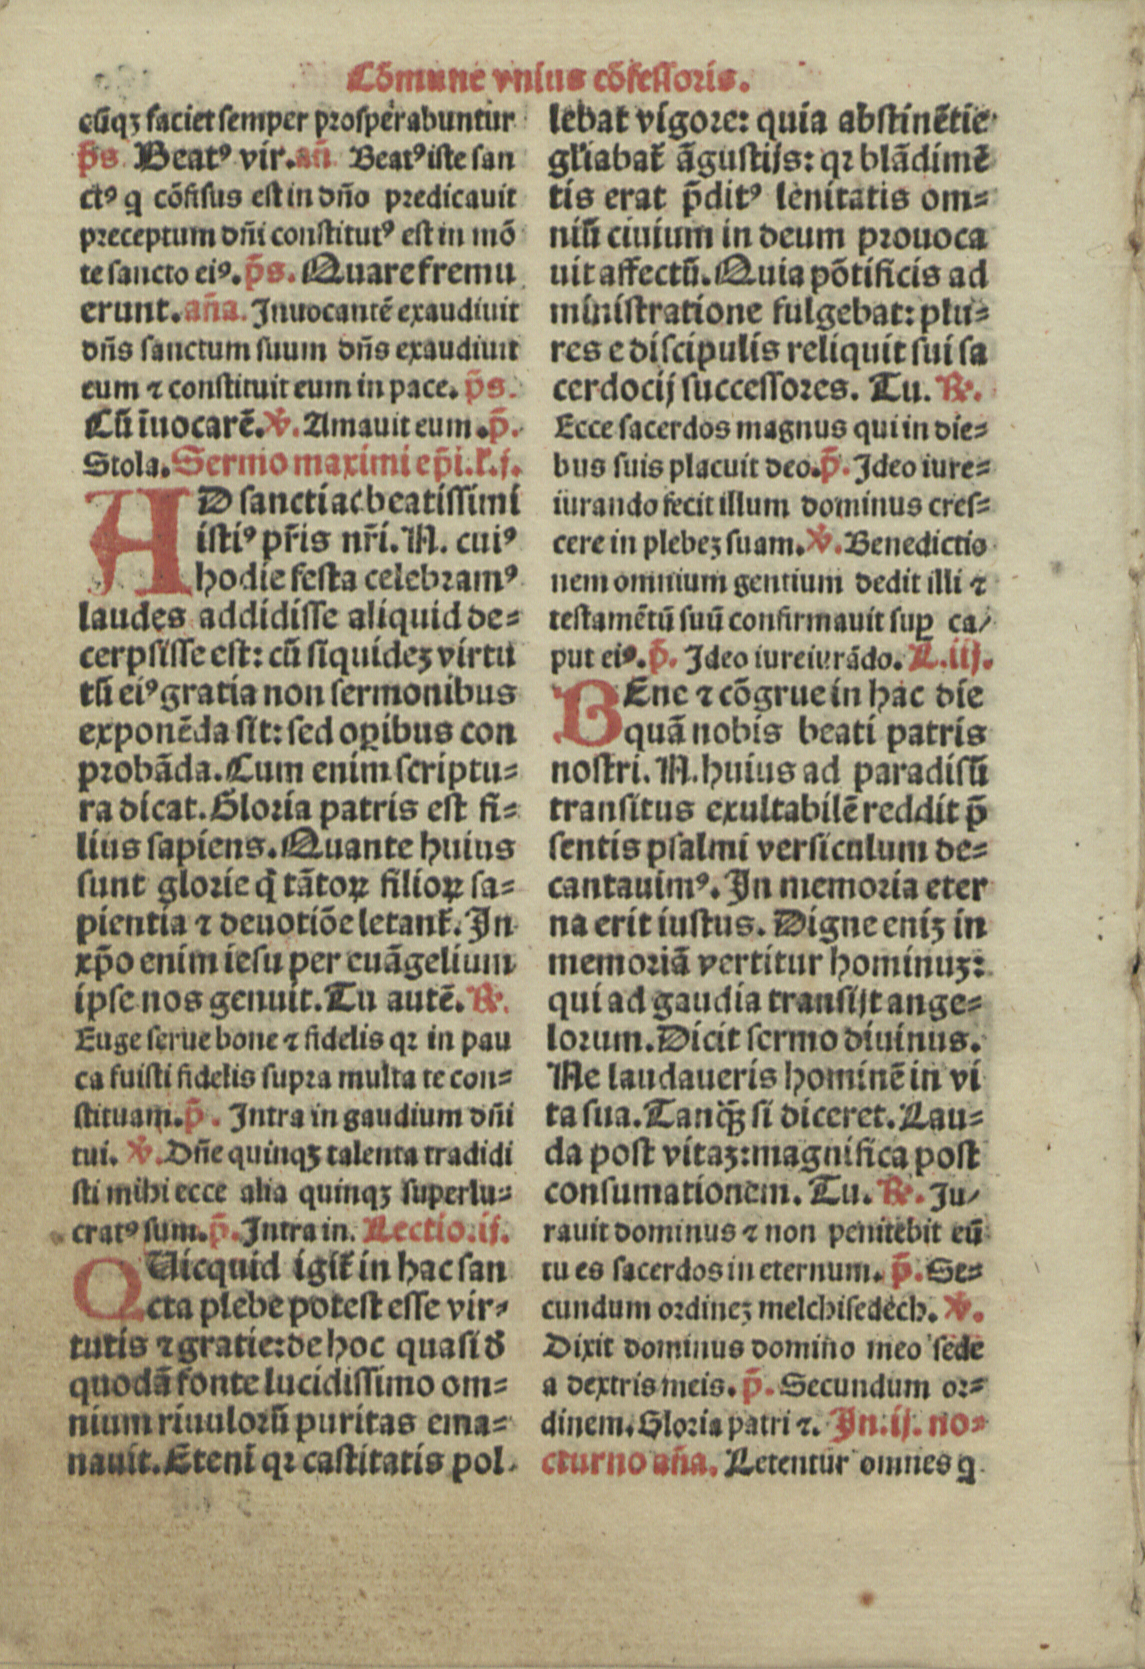 Cõmune vnius cõfessoris.
cũqꝫ faciet semper prosperabuntur
p̃s Beatꝰ vir. añ Beatꝰ iste san
ctꝰ q cõfisus est in dño predicauit
preceptum dñi constitutꝰ est in mõ
te sancto eiꝰ. p̃s. Quare fremu
erunt. aña. Inuocantẽ exaudiuit
dñs sanctum suum dñs exaudiuit
eum ⁊ constituit eum in pace. p̃s.
Cũ ĩuocarẽ. ℣. Amauit eum. p̃.
Stola. Sermo maximi ep̃i. l. j.
AD sancti ac beatissimi
istiꝰ pr̃is nr̃i. N. cuiꝰ
hodie festa celebramꝰ
laudes addidisse aliquid de⸗
cerpsisse est: cũ siquidez virtu
tũ eiꝰ gratia non sermonibus
exponẽda sit: sed oꝑibus con
probãda. Cum enim scriptu⸗
ra dicat. Gloria patris est fi⸗
lius sapiens. Quante huius
sunt glorie q̃ tãtoꝝ filioꝝ sa⸗
pientia ⁊ deuotiõe letant᷑. In
xp̃o enim iesu per euãgelium
ipse nos genuit. Tu autẽ. ℟.
Euge serue bone ⁊ fidelis qꝛ in pau
ca fuisti fidelis supra multa te con⸗
stituam. p̃. Intra in gaudium dñi
tui. ℣. Dñe quinqꝫ talenta tradidi
sti mihi ecce alia quinqꝫ superlu⸗
cratꝰ sum. p̃. Intra in. Lectio. ij.
QVicquid igit᷑ in hac san
cta plebe potest esse vir⸗
tutis ⁊ gratie: de hoc quasi d̃
quodã fonte lucidissimo om⸗
nium riuulorũ puritas ema⸗
nauit. Etenĩ qꝛ castitatis pol
lebat vigore: quia abstinẽtie
gl̃iabat᷑ ãgustijs: qꝛ blãdimẽ
tis erat p̃ditꝰ lenitatis om⸗
niũ ciuium in deum prouoca
uit affectũ. Quia põtificis ad
ministratione fulgebat: plu⸗
res e discipulis reliquit sui sa
cerdocij successores. Tu. ℟.
Ecce sacerdos magnus qui in die⸗
bus suis placuit deo. p̃. Ideo iure⸗
iurando fecit illum dominus cres⸗
cere in plebeꝫ suam. ℣. Benedictio
nem omnium gentium dedit illi ⁊
testamẽtũ suũ confirmauit suꝑ ca/
put eiꝰ. p̃. Ideo iureiurãdo. L. iij.
BEne ⁊ cõgrue in hac die
quã nobis beati patris
nostri. N. huius ad paradisũ
transitus exultabilẽ reddit p̃
sentis psalmi versiculum de⸗
cantauimꝰ. In memoria eter
na erit iustus. Digne eniꝫ in
memoriã vertitur hominuꝫ:
qui ad gaudia transijt ange⸗
lorum. Dicit sermo diuinus.
Ne laudaueris hominẽ in vi
ta sua. Tanq̃ꝫ si diceret. Lau⸗
da post vitaꝫ: magnifica post
consumationem. Tu. ℟. Ju/
rauit dominus ⁊ non penitebit eũ
tu es sacerdos in eternum. p̃. Se⸗
cundum ordineꝫ melchisedech. ℣.
Dixit dominus domino meo sede
a dextris meis. p̃. Secundum or⸗
dinem. Gloria patri ⁊. In. ij. no⸗
cturno aña. Letentur omnes q